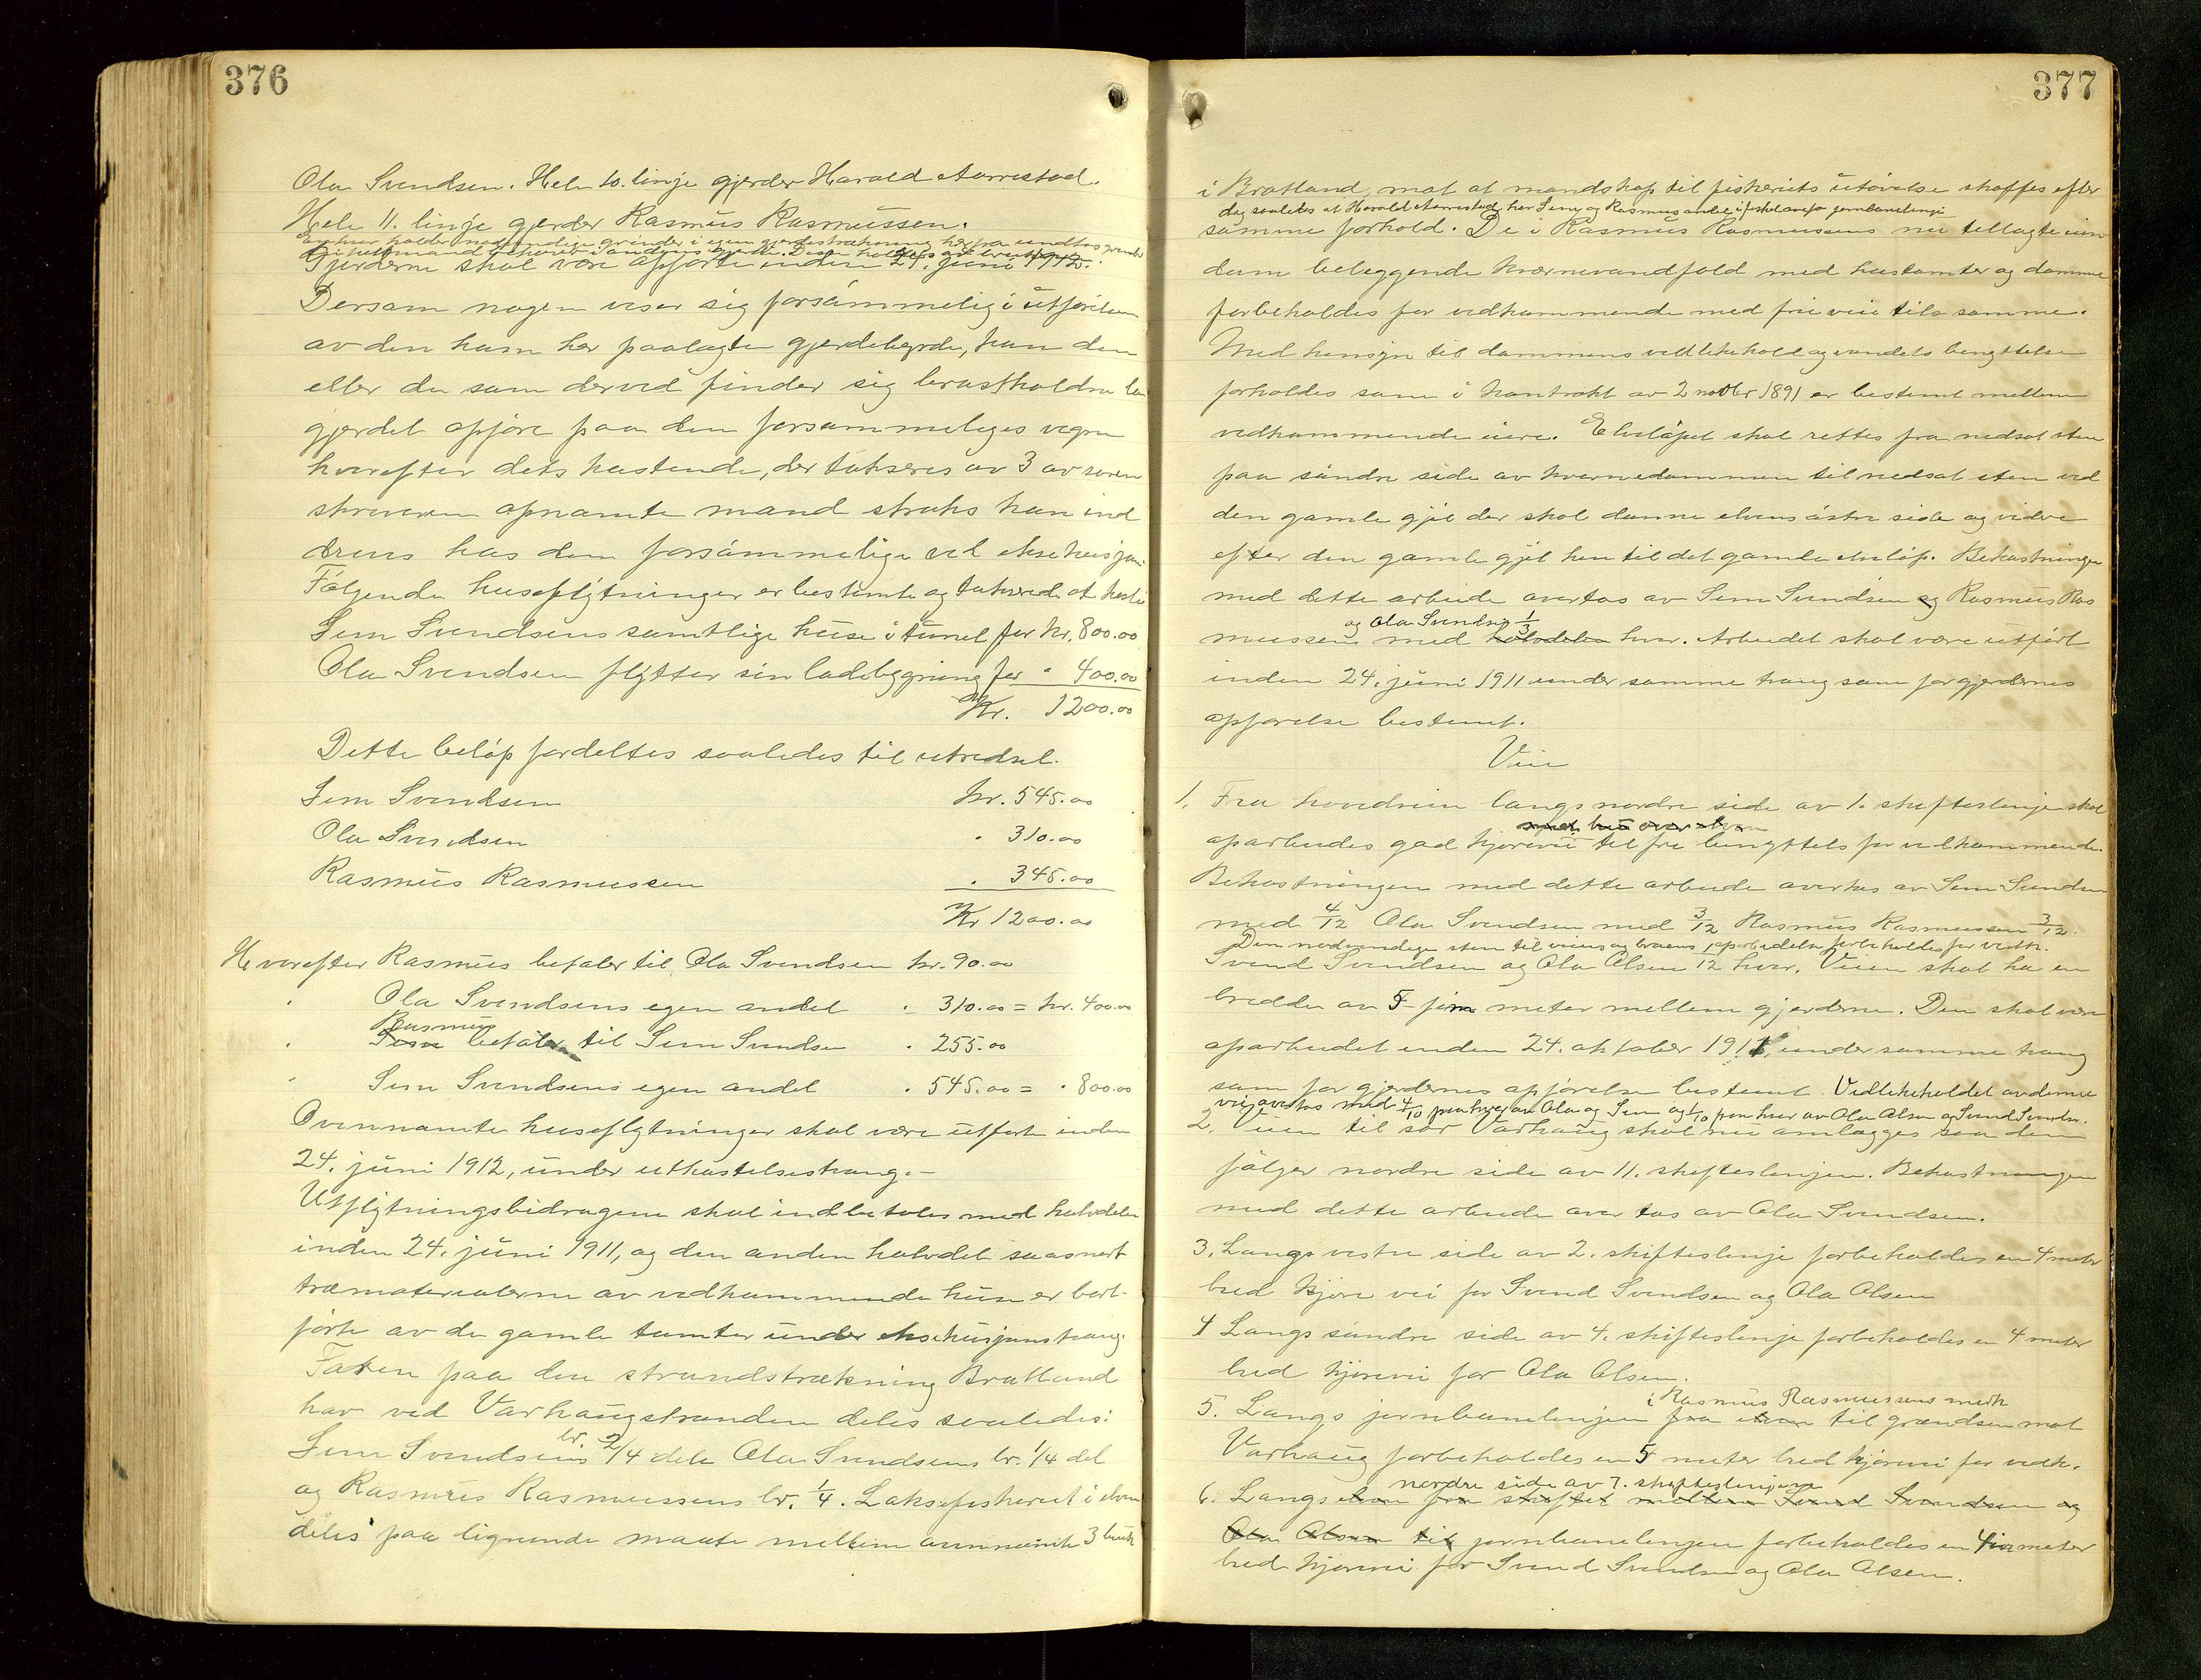 376
Ola Svendsen. Hele 10. linje gjerder Harald Aarrestad.
Hele 11. linje gjerder Rasmus Rasmussen.
Enhver holder nødvendige grinder i egen gjerdestrækning herfra undtas grinder
Gjerderne skal være opført inden 24. juni 1912.
Dersom nogen viser sig forsømmelig i utførelsen
av den ham her paalagte gjerdebyrde, kan den
eller de som derved finder sig brøstholdne la
gjerdet opføre paa den forsømmeliges vegne
hvorefter dets kostende, der takseres av 3 av soren
skriveren opnævnte mænd straks kan ind
drives hos den forsømmelige ved eksekusjon.
Følgende huseflytninger er bestemte og takserede at koste
Sem Svendsens samtlige huse i tunet for kr. 800.00
Ola Svendsen flytter sin ladebygning for " 400.00
Kr. 1200.00
Dette beløp fordeltes saaledes til utredsel.
Sem Svendsen kr. 545.00
Ola Svendsen " 310.00
Rasmus Rasmussen " 345.00
Kr 1200.00
Hvorefter Rasmus betaler til Ola Svendsen kr. 90.00
" Ola Svendsens egen andel " 310.00 = kr. 400.00
Rasmus
" betaler til Sem Svendsen " 255.00
" Sem Svendsens egen andel " 545.00 = " 800.00
Ovennævnte huseflytninger skal være utført inden
24. juni 1912, under utkastelsestvang.-
Utflytningsbidragene skal indbetales med halvdelen
inden 24. juni 1911, og den anden halvdel saasnart
træmaterialerne av vedkommende huse er bort-
ført av de gamle tomter under eksekusjonstvang.
Taren paa den strandstrækning Bratland
har ved Varhaugstranden deles saaledes:
Sem Svendsens br. 2/4 dele Ola Svendsens br. 1/4 del
og Rasmus Rasmussens br. 1/4. Laksefiskeriet i elven
deles paa lignende maate mellem ovennævnte 3 bruk
377
i Bratland, mot at mandskap til fiskeriets utøvelse skaffes efter
dog saaledes at Harald Aarrestad har Sems og Rasmus andel i fisket ovenfor jernbanelinjen
samme forhold. De i Rasmus Rasmussens nu tillagte eien
dom beliggende kværnevandfald med hustomter og damme
forbeholdes for vedkommende med fri vei til samme.
Med hensyn til dammens vedlikehold og vandets benyttelse
forholdes som i kontrakt av 2 novbr 1891 er bestemt mellem
vedkommende eiere. Elveløpet skal rettes fra nedsat sten
paa søndre side av kvernedammen til nedsat sten ved
den gamle gjel der skal danne elvens østre side og videre
efter den gamle gjel hen til det gamle elveløp. Bekostningen
med dette arbeide overtas av Sem Svendsen og Rasmus Ras
og Ola Svendsen 1/3
mussen med halvdelen hver. Arbeidet skal være utført
inden 24. juni 1911 under samme tvang som for gjerdernes
opførelse bestemt.
Veie
1. Fra hovedveien langs nordre side av 1. skifteslinje skal
med bro over elven
oparbeides god kjørevei til fri benyttelse for vedkommende.
Bekostningen med dette arbeide overtas av Sem Svendsen
med 4/12 Ola Svendsen med 3/12 Rasmus Rasmussen 3/12.
Den nødvendige sten til veiens og broens oparbeidelse forbeholdes for vedk.
Svend Svendsen og Ola Olsen 1/12 hver. Veien skal ha en
bredde av 5 fem meter mellem gjerderne. Den skal være
oparbeidet inden 24. oktober 1911, under samme tvang
som for gjerdernes opførelse bestemt. Vedlikeholdet av denne
vei overtas med 4/10 paa hver av Ola og Sem og 1/10 paa hver av Ola Olsen og Svend Svendsen.
2. Veien til sør Varhaug skal nu anlægges saa den
følger nordre side av 11. skifteslinjen. Bekostningen
med dette arbeide overtas av Ola Svendsen.
3. Langs vestre side av 2. skifteslinje forbeholdes en 4 meter
bred kjørevei for Svend Svendsen og Ola Olsen
4 Langs søndre side av 4. skifteslinje forbeholdes en 4 meter
bred kjørevei for Ola Olsen.
i Rasmus Rasmussens merk
5. Langs jernbanelinjen fra elven til grændsen mot
Varhaug forbeholdes en 5 meter bred kjørevei for vedk.
nordre side av 7. skifteslinjen
6. Langs elven fra skiftet mellem Svend Svendsen og
Ola Olsen til jernbanelinjen forbeholdes en 4 meter
bred kjørevei for Svend Svendsen og Ola Olsen.